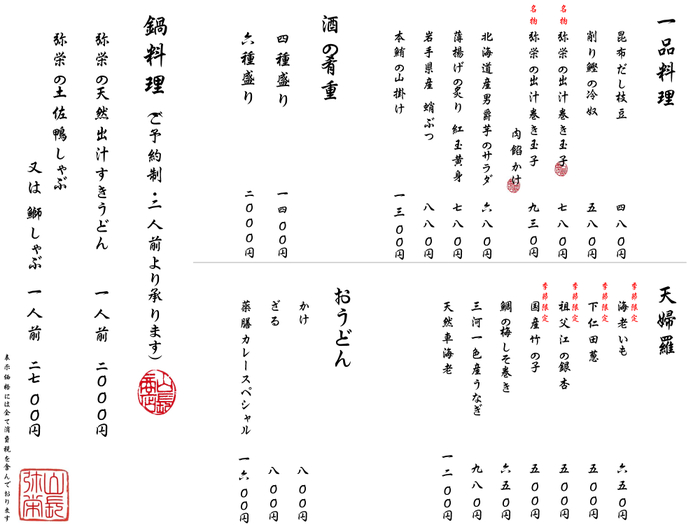 一品料理
昆布だし枝豆 四八〇円
削り鰹の冷奴 五八〇円
名物 弥栄の出汁巻き玉子 七八〇円
名物 弥栄の出汁巻き玉子
肉餡かけ 九三〇円
北海道産男爵芋のサラダ 六八〇円
薄揚げの炙り 紅玉黄身 七八〇円
岩手県産 蛸ぶつ 八八〇円
本鮪の山掛け 一三〇〇円
酒の肴重
四種盛り 一四〇〇円
六種盛り 二〇〇〇円
天婦羅
季節限定 海老いも 六五〇円
季節限定 下仁田葱 五〇〇円
季節限定 祖父江の銀杏 五〇〇円
季節限定 国産竹の子 五〇〇円
鯛の梅しそ巻き 六五〇円
三河一色産うなぎ 九八〇円
天然車海老 一二〇〇円
おうどん
かけ 八〇〇円
ざる 八〇〇円
薬膳カレースペシャル 一六〇〇円
鍋料理 (ご予約制・二人前より承ります)
弥栄の天然出汁すきうどん 一人前 二〇〇〇円
弥栄の土佐鴨しゃぶ
又は鰤しゃぶ 一人前 二七〇〇円
表示価格には全て消費税を含んでおります
山長
弥栄